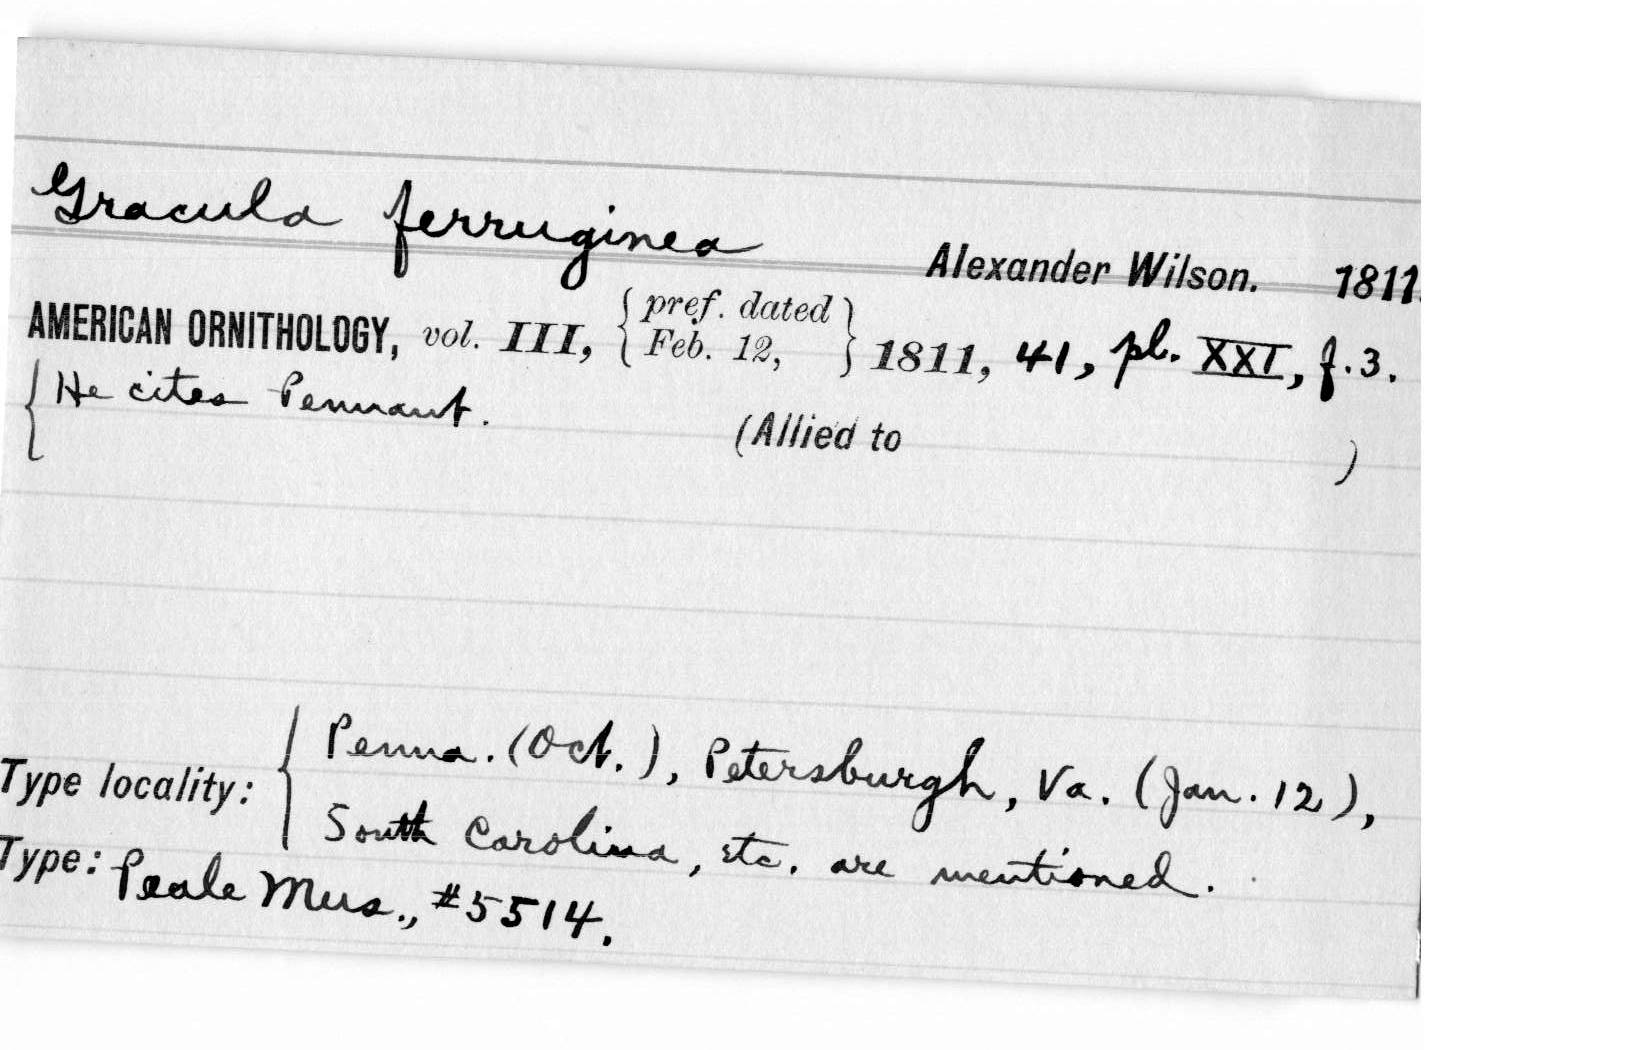 Gracula ferruginea Alexander Wilson. 1811.
AMERICAN ORNITHOLOGY, vol. III, { pref. dated Feb. 12, } 1811, 41, pl. XXI, f. 3.
{ He cites Pennant. (Allied to )
Type locality: { Penna. (Oct.), Petersburgh, Va. (Jan. 12),
South Carolina, etc. are mentioned.
Type: Peale Mus., #5514.